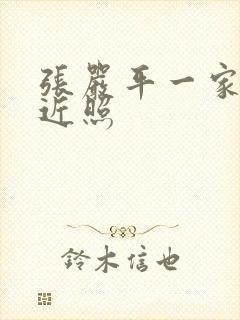 張嚴平一家
近照
鈴木信也